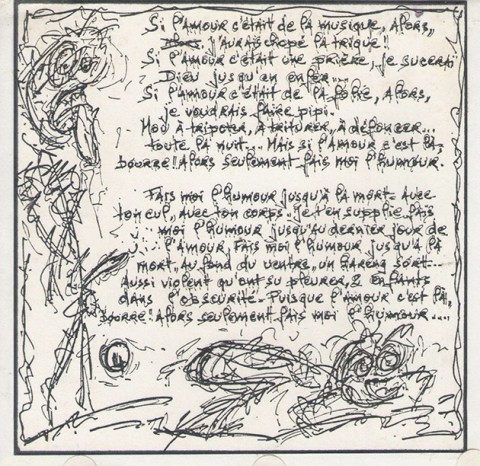 Si l'AMOUR c'était de la musique, Alors,
j'AURAIS chopé lA trique!!
Si l'AMOUR c'était une prière, je sucerai
Dieu jusqu'en enfer...
Si l'AMOUR c'était de lA folie, Alors,
je voudrais faire pipi.
Mou à tripoter, à triturer, à défoncer...
toute lA nuit... MAis si l'Amour c'est lA
bourre! Alors seulement fais moi l'humour.
FAis moi l'humour jusqu'à lA mort Avec
ton cul, Avec ton corps. Je t'en supplie fais
moi l'humour jusqu'au dernier jour de
l'Amour. FAis moi l'humour jusqu'à lA
mort. Au fond du ventre, un hareng sort...
Aussi violent qu'ont su pleurer, 2 enfants
dans l'obscurité. Puisque l'Amour c'est lA
bourre! Alors seulement fais moi l'humour....